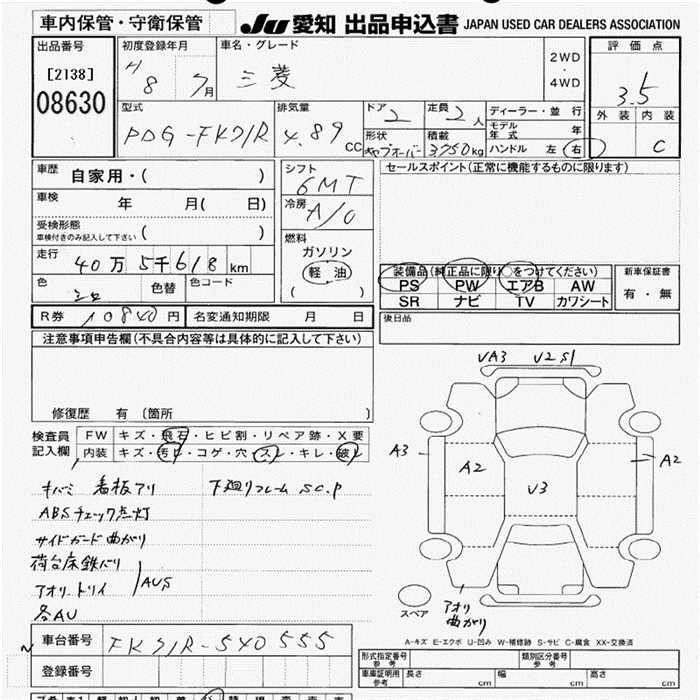 車内保管・守衛保管
JU 愛知 出品申込書 JAPAN USED CAR DEALERS ASSOCIATION
出品番号
[2138]
08630
初度登録年月
H 8 7月
車名・グレード
三菱
2WD
・
4WD
評価点
3.5
外装 内装
C
型式
PDG-FK71R
排気量
4.89 CC
ドア 2
定員 2人
形状 キャブオーバー
積載 3750kg
ディーラー・並 行
モデル年式 年
ハンドル 左 右
車歴 自家用・( )
車検 年 月( 日)
受検形態
車検付きのみ記入して下さい ( )
走行 40万5千618km
色 シロ 色替 色コード
シフト
6MT
冷房
A/C
燃料
ガソリン
軽油
( )
セールスポイント(正常に機能するものに限ります)
装備品(純正品に限り○をつけてください)
PS PW エアB AW
SR ナビ TV カワシート
新車保証書
有・無
後日品
R券 10840円 名変通知期限 月 日
注意事項申告欄(不具合内容等は具体的に記入して下さい)
修復歴 有 〔箇所 〕
検査員
記入欄
FW キズ・飛石・ヒビ割・リペア跡・X要
内装 キズ・汚レ・コゲ・穴・スレ・キレ・破レ
キバミ 看板アリ 下廻りフレーム SC.P
ABSチェック点灯
サイドガード曲がり
荷台床鉄バリ
アオリートリイ AUS
各AU
VA3 V2S1
A3
A2
V3
A2
スペア
アオリ
曲がり
A-キズ E-エクボ U-凹み W-補修跡 S-サビ C-腐食 XX-交換済
車台番号 FK71R-540555
登録番号
形式指定番号
参考
類別区分番号
参考
車庫証明用
参考
長さ cm 幅 cm 高さ cm